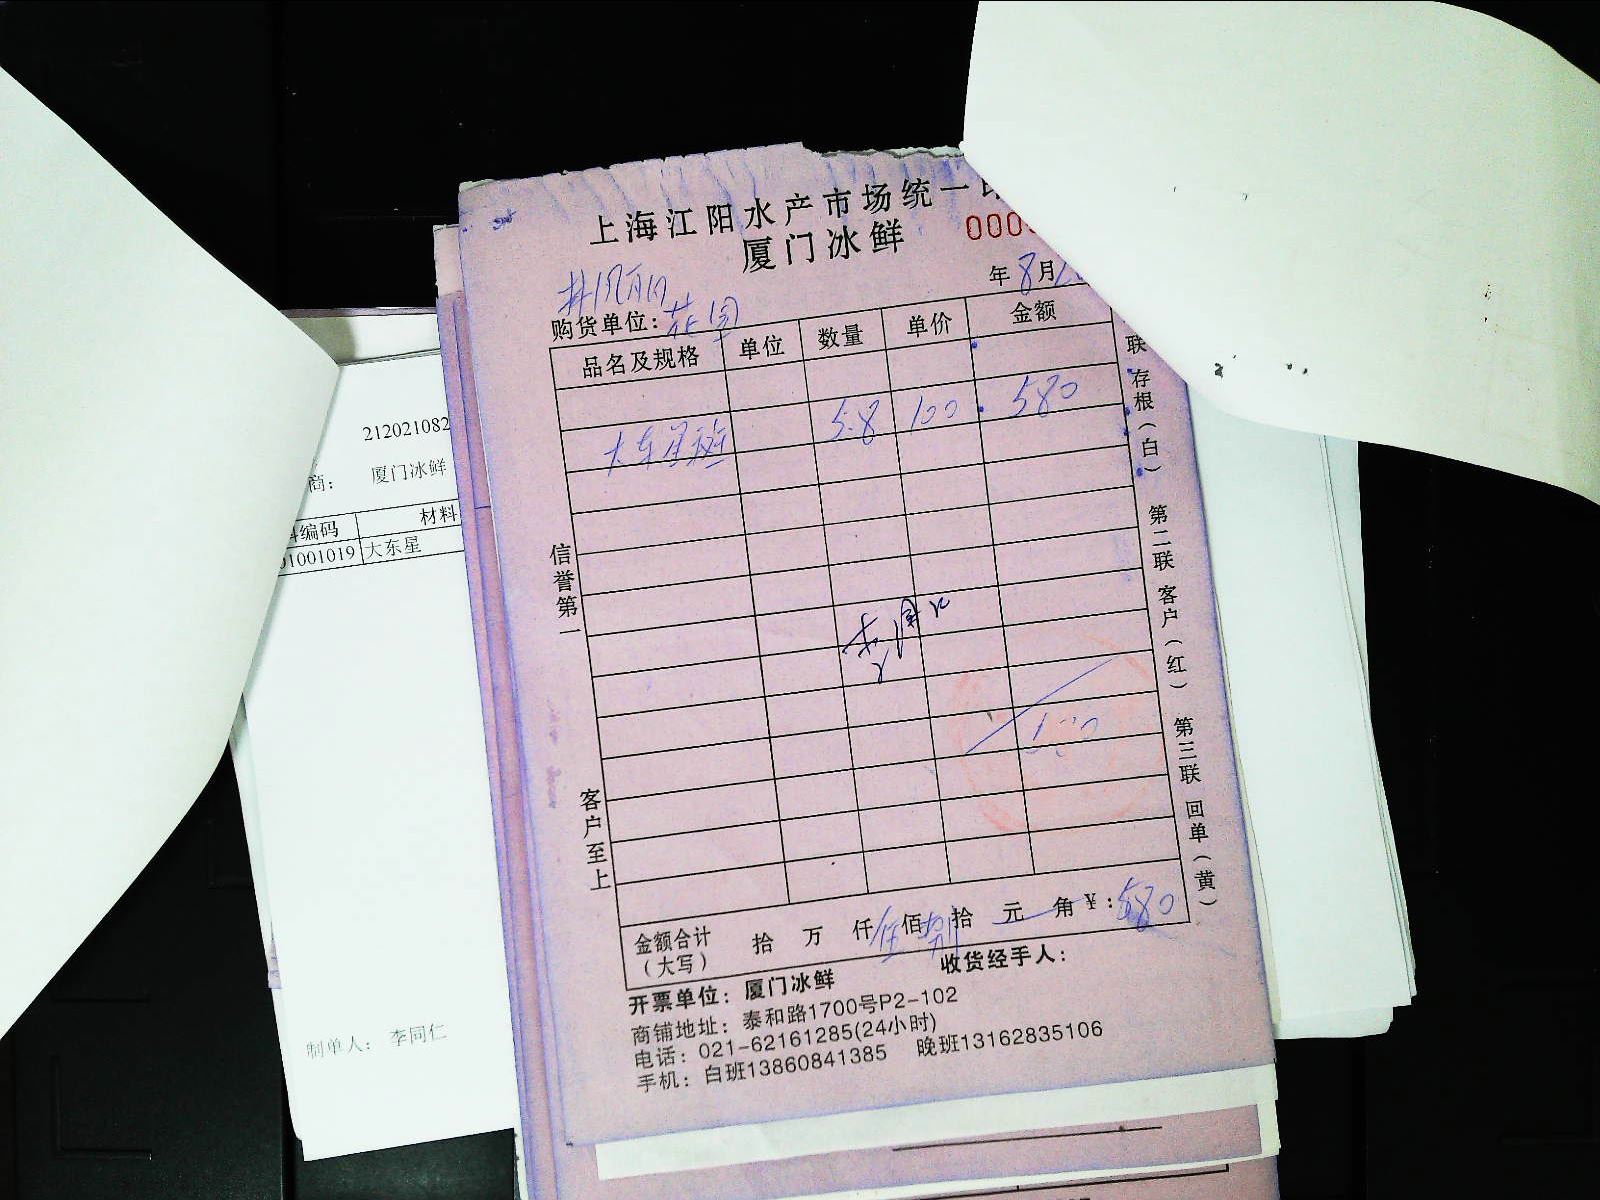 上海江阳水产市场统一
厦门冰鲜
000
年8月
购货单位：花园
品名及规格 单位 数量 单价 金额
大东星斑 5.8 100 580
信誉第一
客户至上
联 存根（白） 第二联 客户（红） 第三联 回单（黄）
金额合计（大写） 拾 万 仟 伍 佰 捌 拾 元 角 ¥：580
开票单位：厦门冰鲜 收货经手人：
商铺地址：泰和路1700号P2-102
电话：021-62161285(24小时)
手机：白班13860841385 晚班13162835106
212021082
商： 厦门冰鲜
料编码 材料
01001019 大东星
制单人： 李同仁